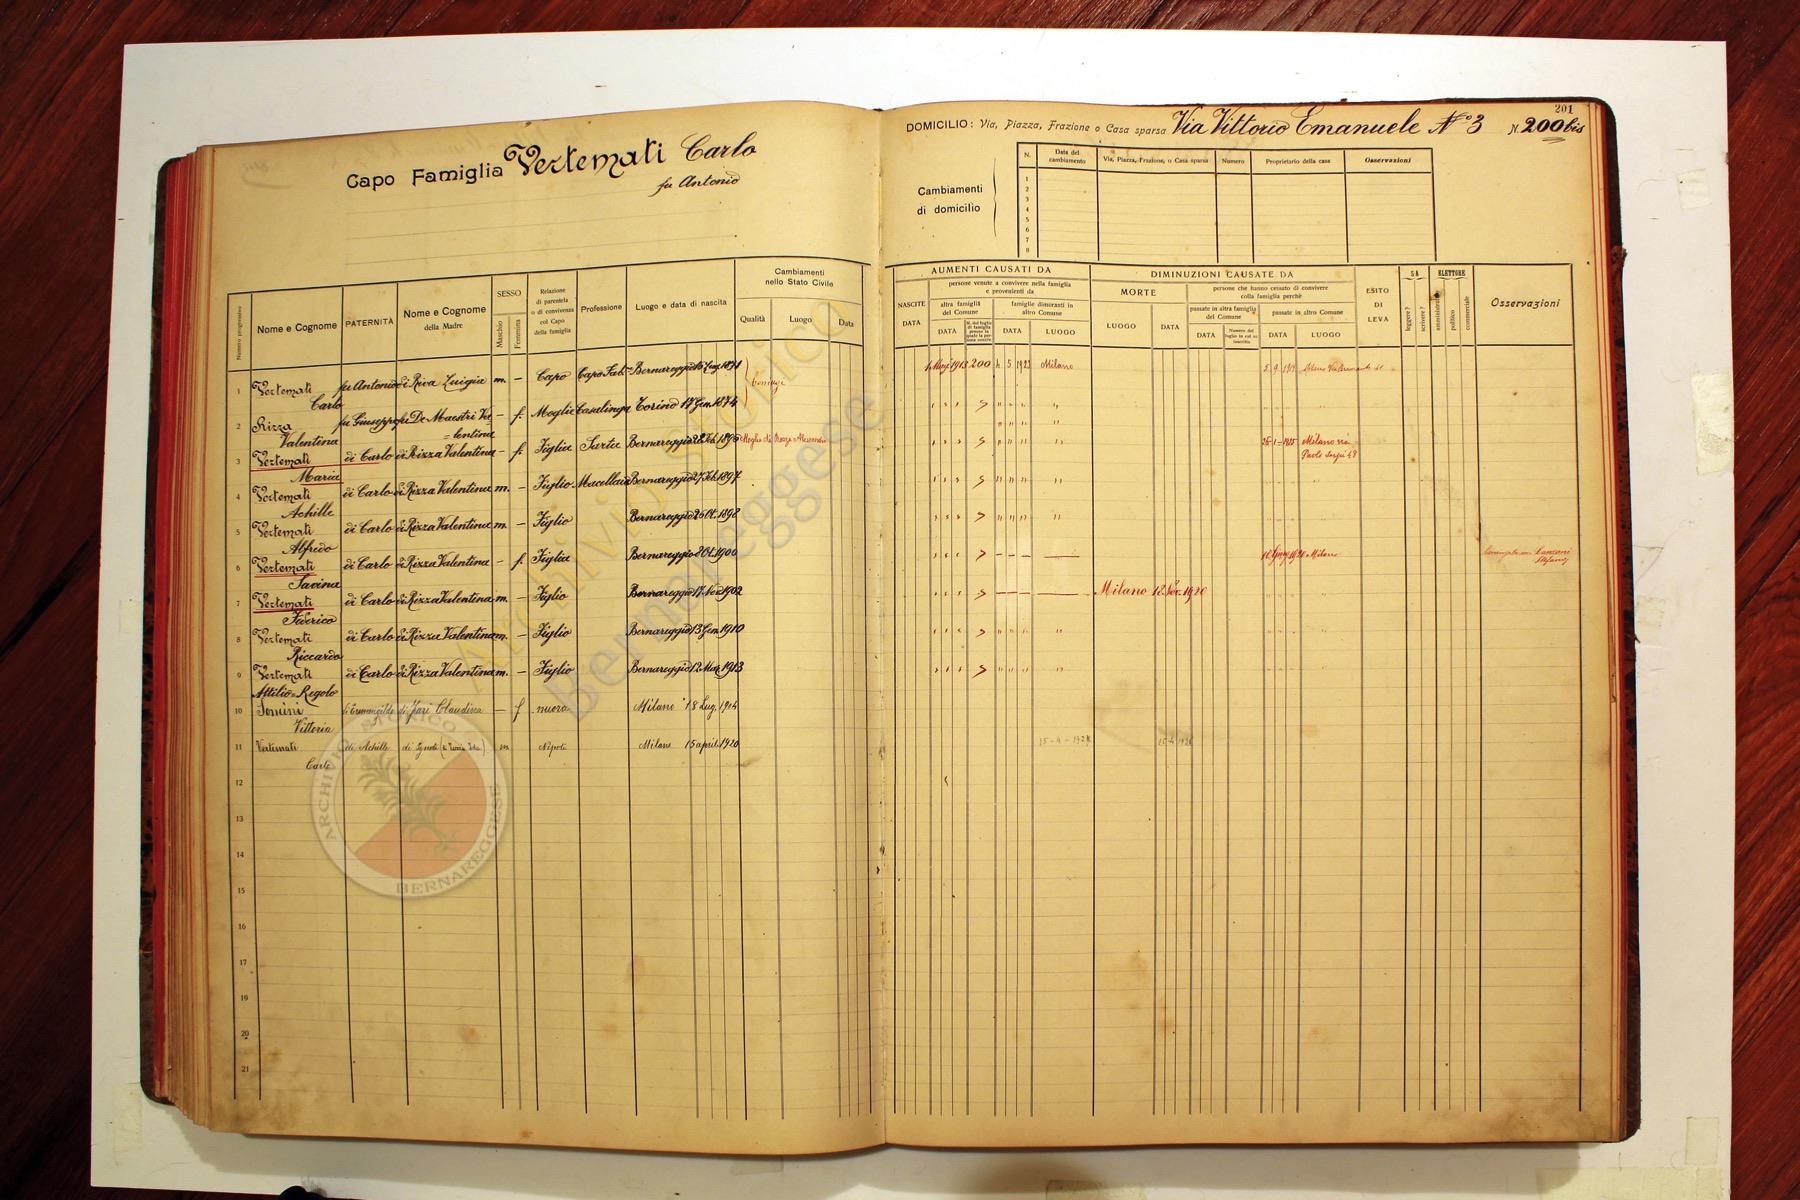 201
Capo Famiglia Vertemati Carlo
fu Antonio
DOMICILIO: Via, Piazza, Frazione o Casa sparsa Via Vittorio Emanuele N° 3 N. 200 bis
Cambiamenti
di domicilio
N. Data del cambiamento Via, Piazza, Frazione, o Casa sparsa Numero Proprietario della casa Osservazioni
1
2
3
4
5
6
7
8
Numero progressivo
Nome e Cognome
PATERNITÀ
Nome e Cognome
della Madre
SESSO
Maschio
Femmina
Relazione
di parentela
o di convivenza
col Capo
della famiglia
Professione
Luogo e data di nascita
Cambiamenti
nello Stato Civile
Qualità Luogo Data
AUMENTI CAUSATI DA
NASCITE
DATA
persone venute a convivere nella famiglia
e provenienti da
altra famiglia
del Comune
DATA
famiglie dimoranti in
altro Comune
DATA LUOGO
DIMINUZIONI CAUSATE DA
MORTE
LUOGO DATA
persone che hanno cessato di convivere
colla famiglia perchè
passate in altra famiglia
del Comune
DATA
Numero del
foglio in cui va
inscritto
passate in altro Comune
DATA LUOGO
ESITO
DI
LEVA
SA
leggere?
scrivere?
ELETTORE
amministrat.
politico
commerciale
Osservazioni
1 Vertemati Carlo fu Antonio di Riva Luigia m. — Capo Capo Fab. Bernareggio 15 Lug. 1871 Coniugi 1913 200 4 5 1923 Milano 5 9 1919
2 Rizza Valentina fu Giuseppe fu De Maestri Valentina — f. Moglie Casalinga Torino 17 Gen. 1874
3 Vertemati Maria di Carlo di Rizza Valentina — f. Figlia Sarta Bernareggio 28 Feb. 1896 Moglie di Alessandro 26-1-1925 Milano via Paolo Sarpi 48
4 Vertemati Achille di Carlo di Rizza Valentina m. — Figlio Macellaio Bernareggio 27 Feb. 1897
5 Vertemati Alfredo di Carlo di Rizza Valentina m. — Figlio Bernareggio 26 Ot. 1898
6 Vertemati Savina di Carlo di Rizza Valentina — f. Figlia Bernareggio 8 Ot. 1900 1920 Milano
7 Vertemati Federico di Carlo di Rizza Valentina m. — Figlio Bernareggio 17 Nov. 1902 Milano 12 Nov. 1920
8 Vertemati Riccardo di Carlo di Rizza Valentina m. — Figlio Bernareggio 13 Gen. 1910
9 Vertemati Attilio-Regolo di Carlo di Rizza Valentina m. — Figlio Bernareggio 12 Mag. 1913
10 Vittoria di Ermenegildo di Claudina — f nuora Milano 18 Lug. 1904
11 Vertemati Carlo di Achille m Nipote Milano 15 aprile 1920
12
13
14
15
16
17
18
19
20
21
Archivio Storico
Bernareggese
ARCHIVIO STORICO
BERNAREGGESE